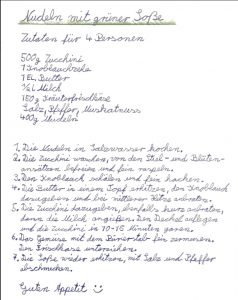 Nudeln mit grüner Soße
Zutaten für 4 Personen
500g Zucchini
1 Knoblauchzehe
1 EL Butter
1/4 l Milch
150g Kräuterfrischkäse
Salz, Pfeffer, Muskatnuss
400g Nudeln
1. Die Nudeln in Salzwasser kochen.
2. Die Zucchini waschen, von den Stiel- und Blüten-
ansätzen befreien und fein raspeln.
3. Den Knoblauch schälen und fein hacken.
4. Die Butter in einem Topf erhitzen, den Knoblauch
dazugeben und bei mittlerer Hitze anbraten.
5. Die Zucchini dazugeben, ebenfalls kurz anbraten,
dann die Milch angießen. Den Deckel auflegen
und die Zucchini in 10-15 Minuten garen.
6. Das Gemüse mit dem Pürierstab fein zermusen.
Den Frischkäse unterziehen.
7. Die Soße wieder erhitzen, mit Salz und Pfeffer
abschmecken.
Guten Appetit